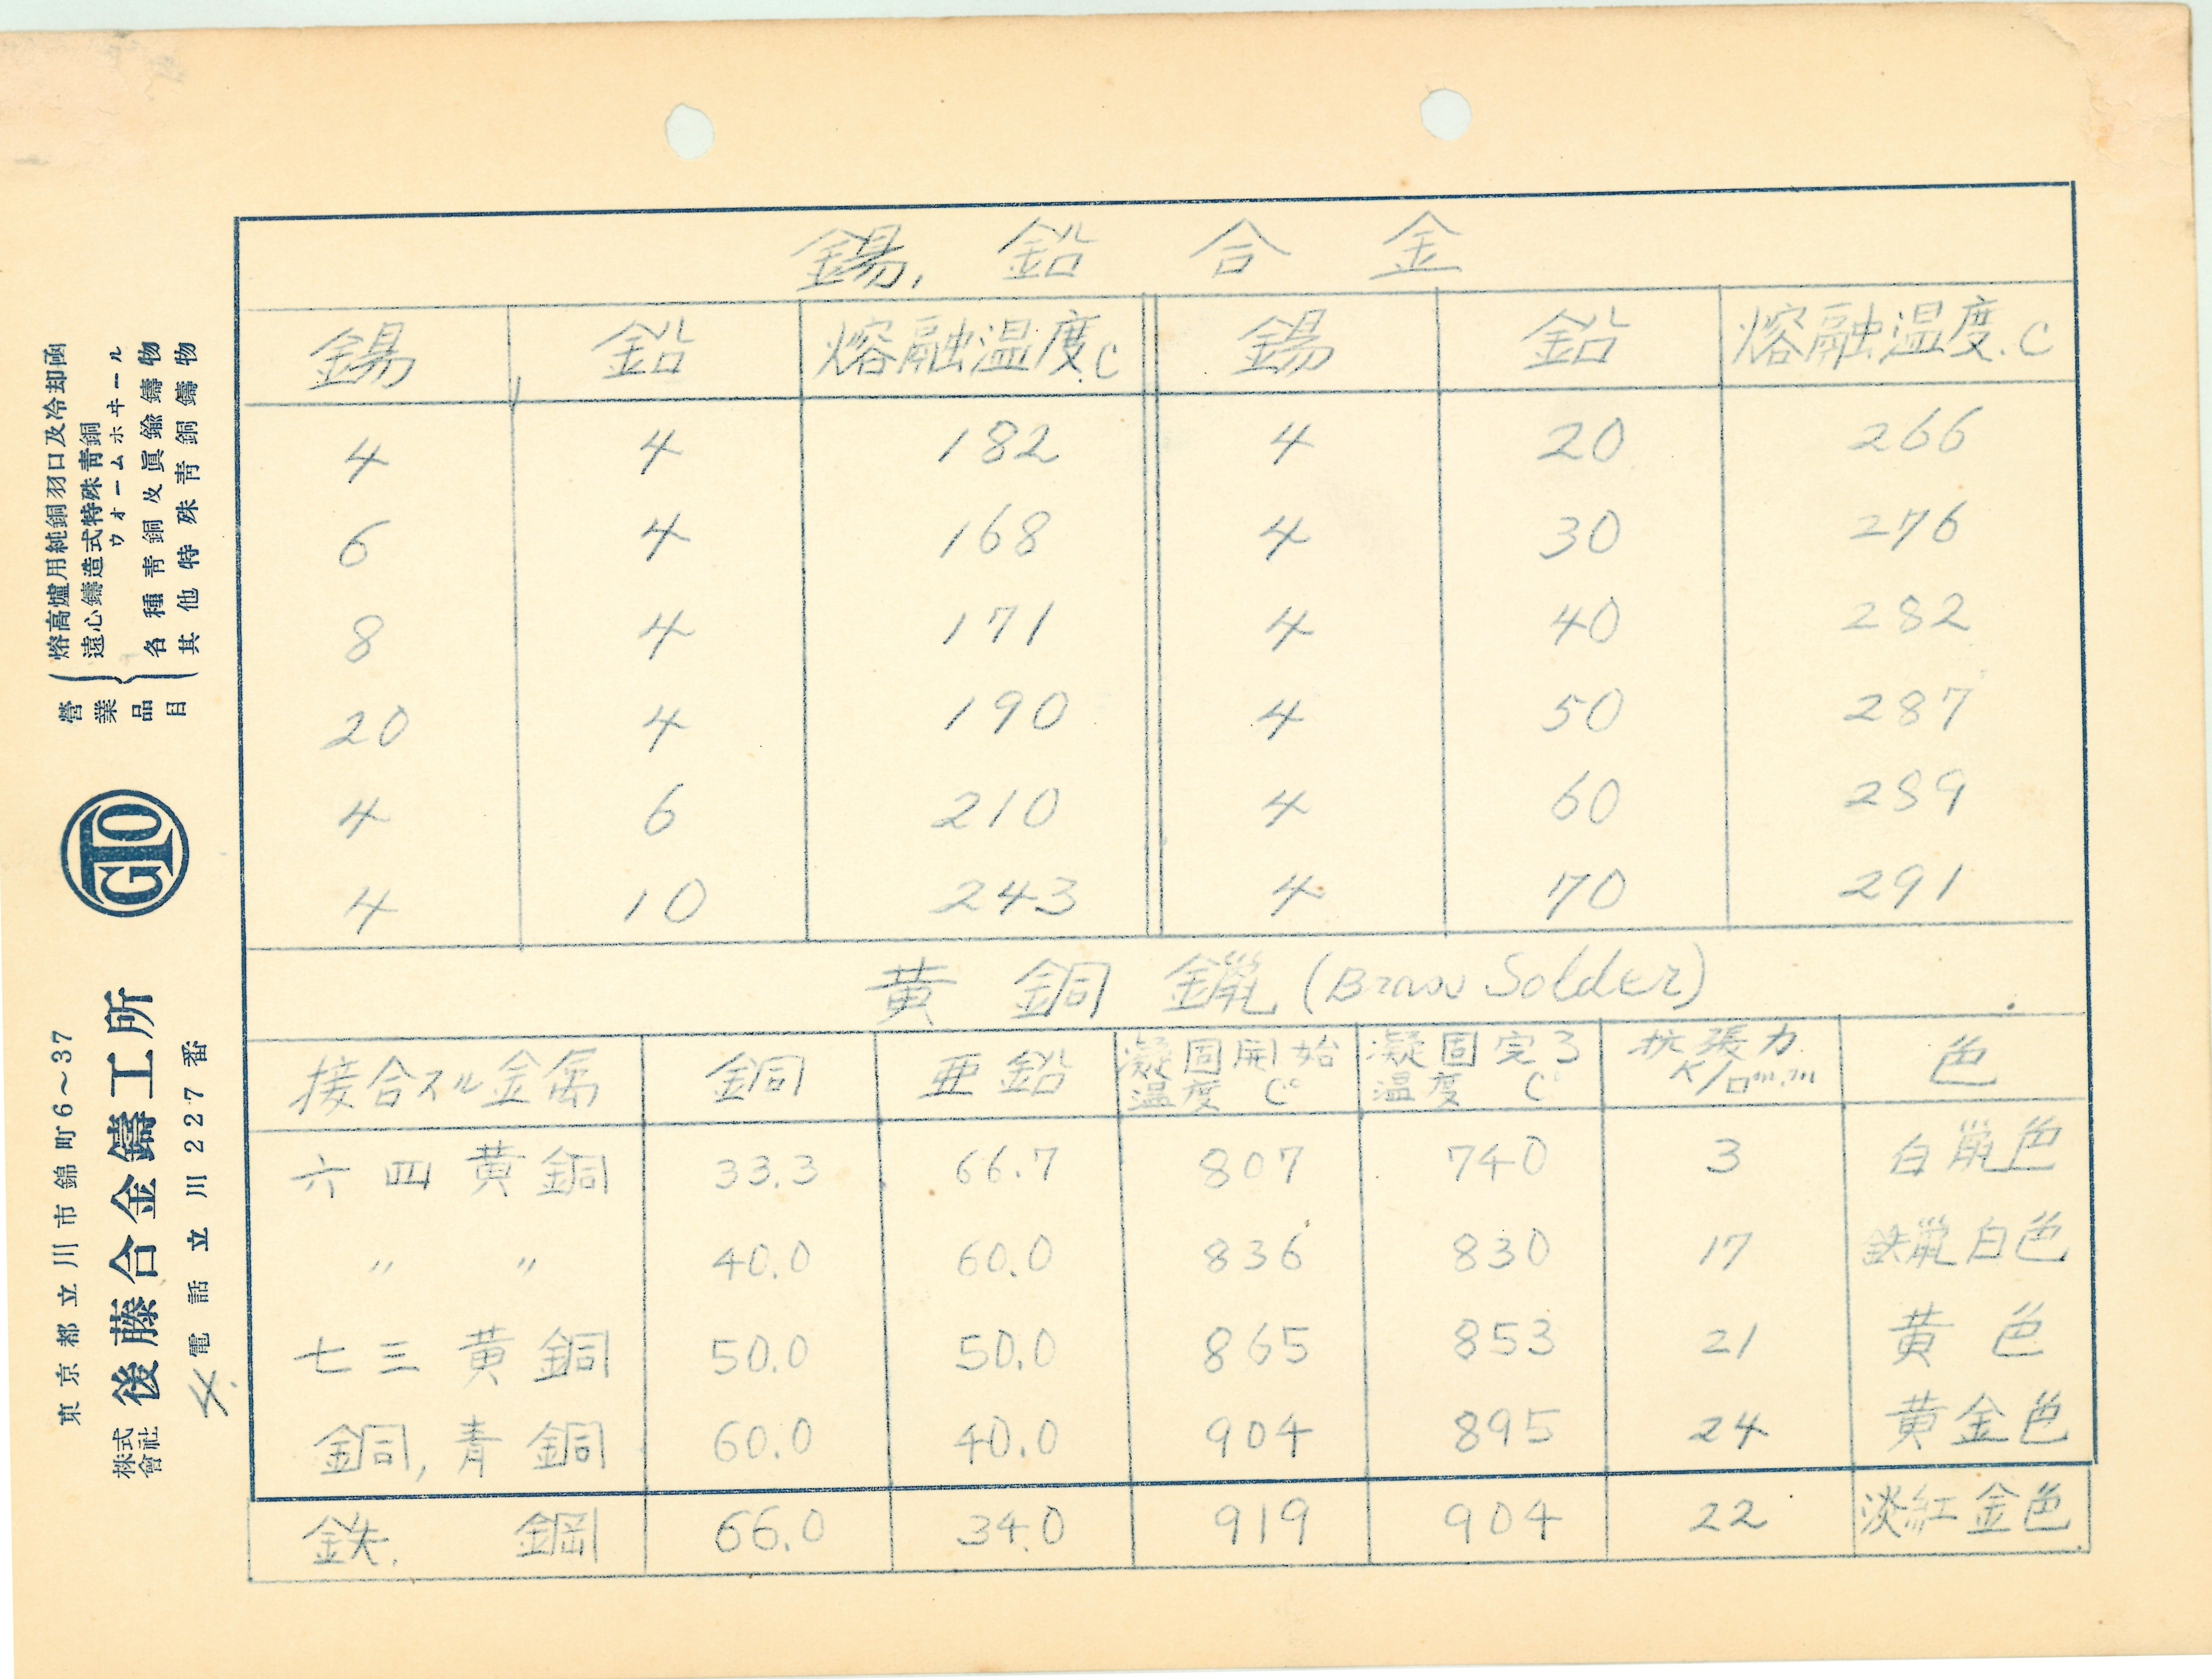 錫, 鉛 合 金
錫 鉛 熔融温度.C 錫 鉛 熔融温度.C
4 4 182 4 20 266
6 4 168 4 30 276
8 4 171 4 40 282
20 4 190 4 50 287
4 6 210 4 60 289
4 10 243 4 70 291
黄 銅 鑞 (Brass Solder)
接合スル金属 銅 亜鉛 凝固開始温度 C° 凝固完了温度 C° 抗張力 K/□m.m 色
六 四 黄 銅 33.3 66.7 807 740 3 白鼠色
〃 〃 40.0 60.0 836 830 17 白色
七 三 黄 銅 50.0 50.0 865 853 21 黄 色
銅, 青 銅 60.0 40.0 904 895 24 黄金色
鉄. 鋼 66.0 34.0 919 904 22 淡紅金色
營業品目
熔高爐用純銅羽口及冷却函
遠心鑄造式特殊靑銅
ウオームホヰール
各種靑銅及眞鍮鑄物
其他特殊靑銅鑄物
GTO
東京都立川市錦町6～37
株式會社 後藤合金鑄工所
電話立川227番
4.